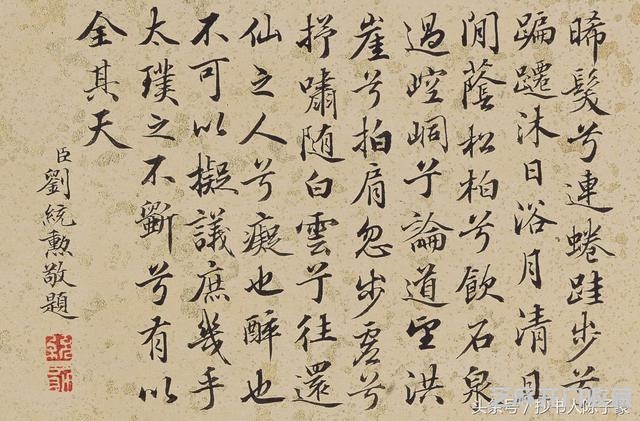 晞髮兮連蜷跬步兮
蹁躚沐日浴月清且
閒蔭松柏兮飲石泉
過崆峒兮論道望洪
崖兮拍肩忽步虛兮
抒嘯随白雲兮往還
仙之人兮癡也醉也
不可以擬議庶幾乎
太璞之不斵兮有以
全其天
臣劉統勳敬題
头条号 / 抄书人陈子豪